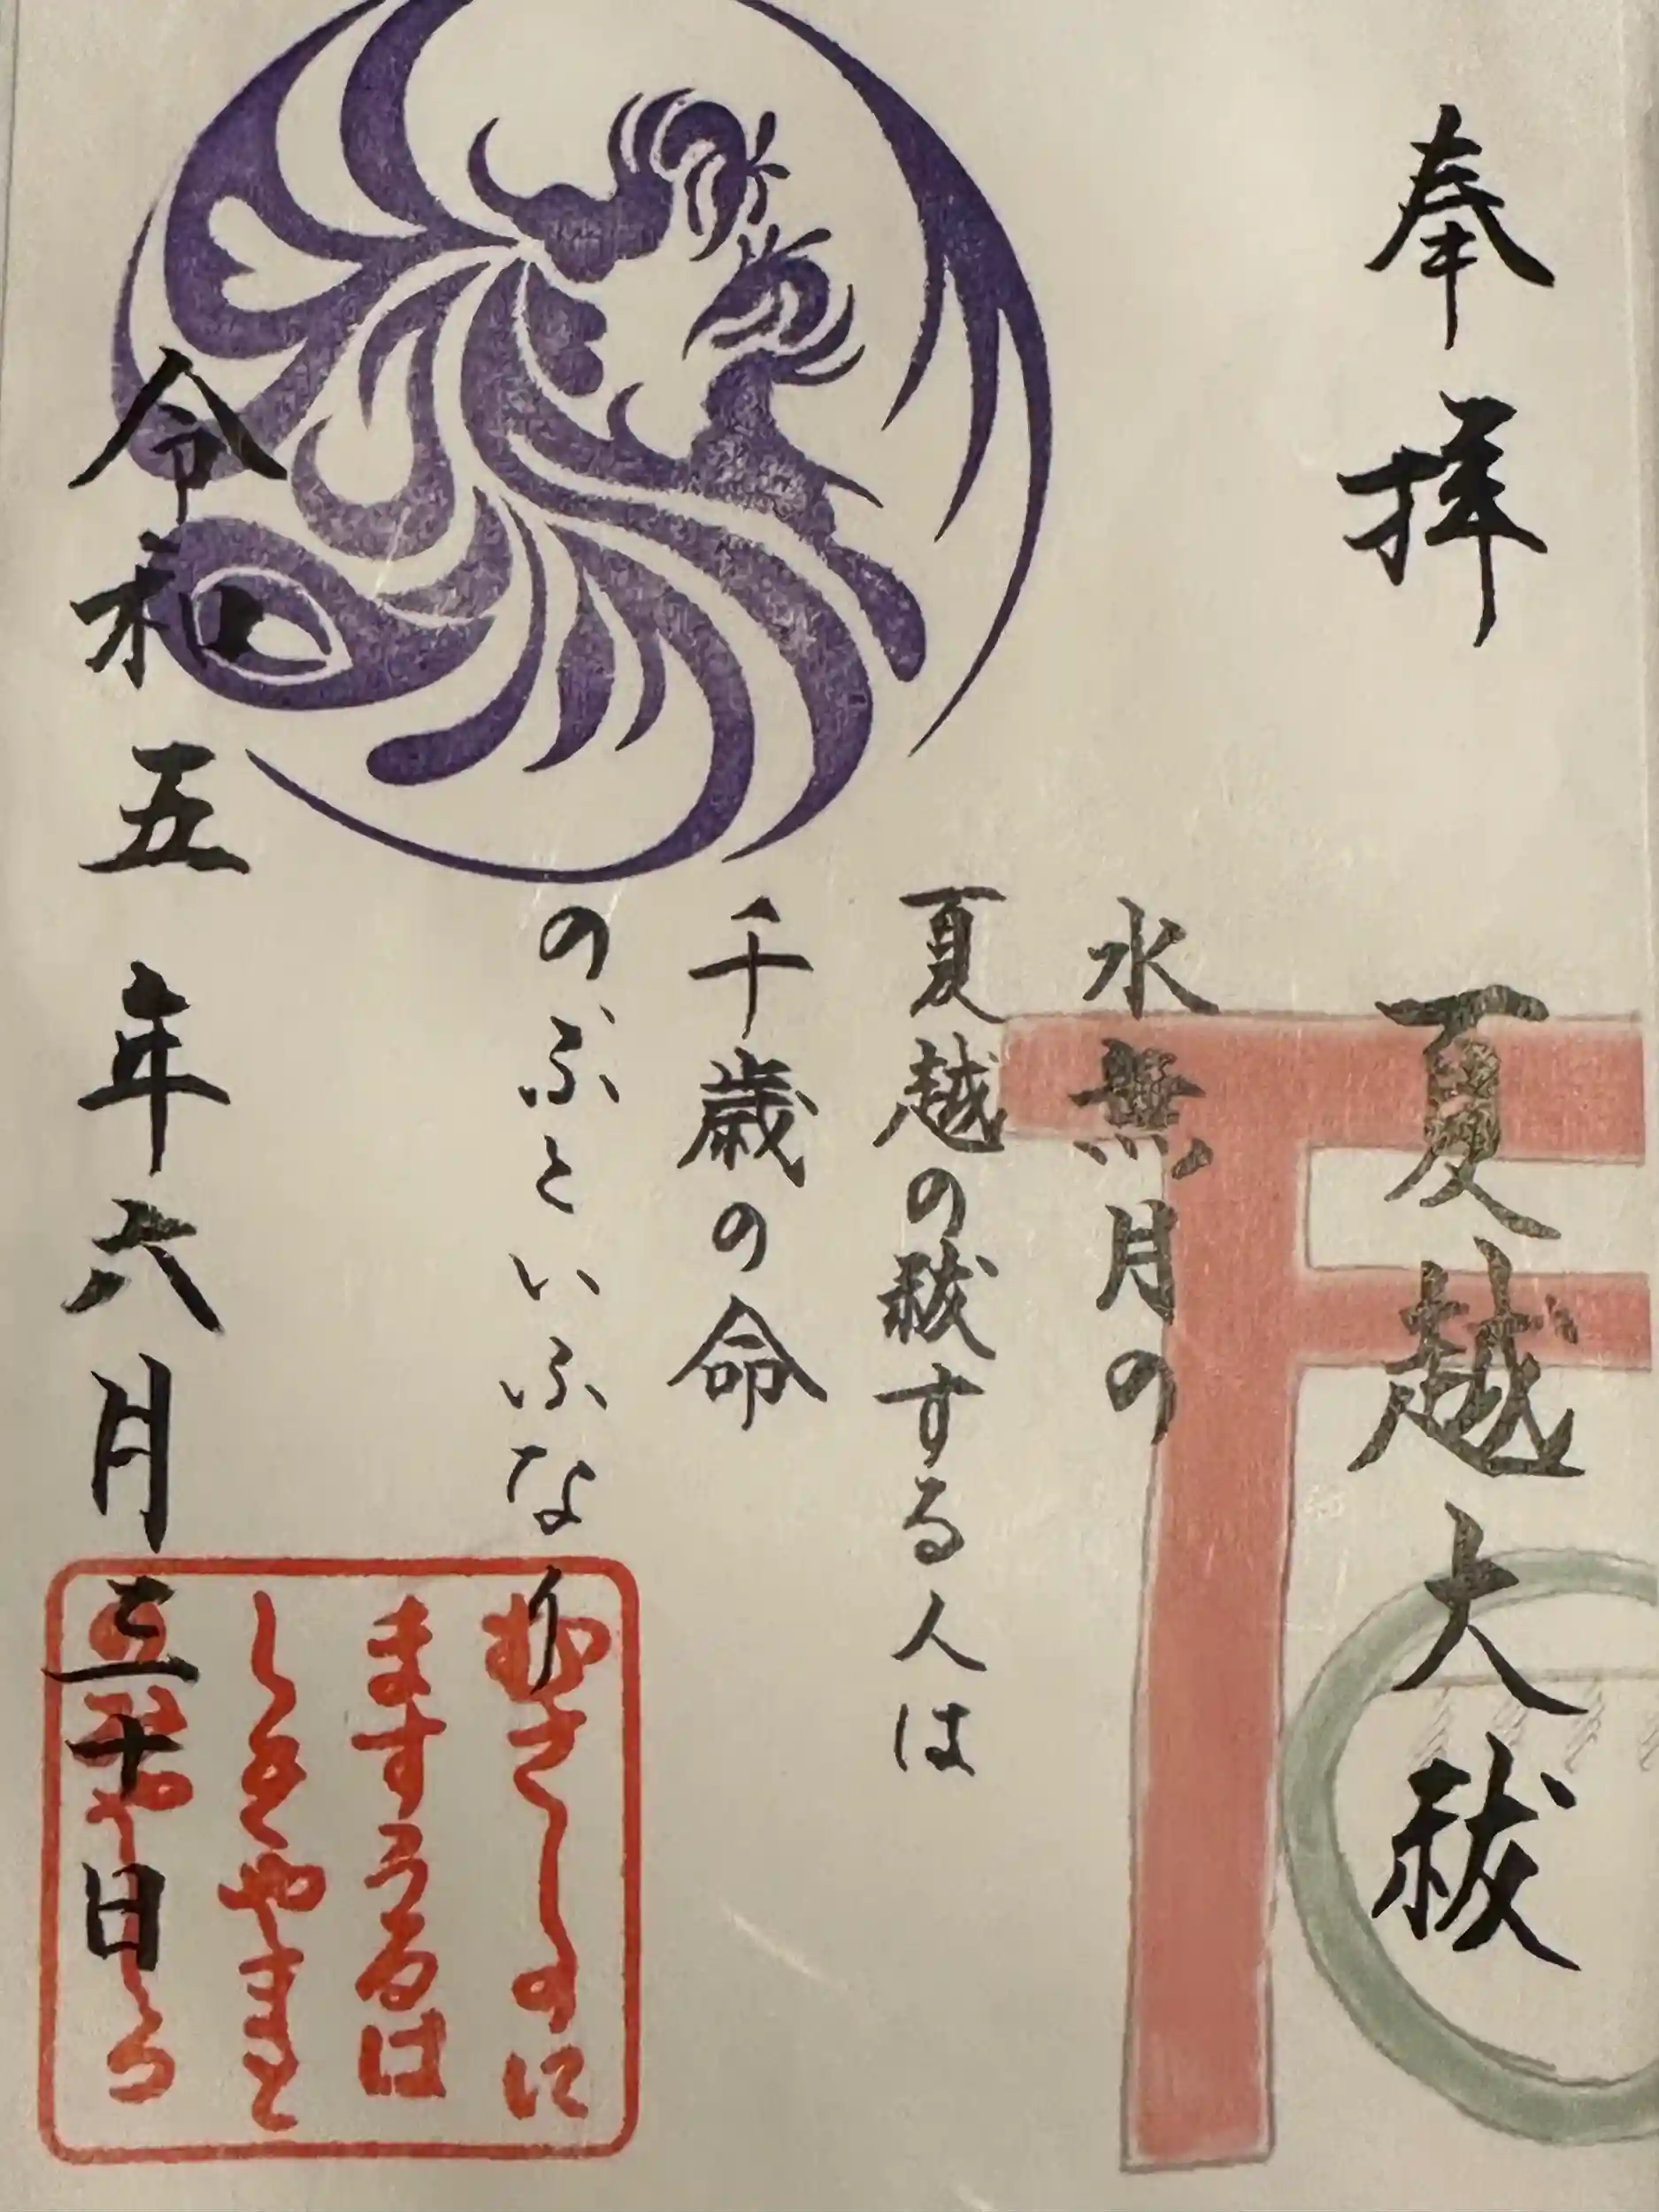 奉拝
夏越大祓
水無月の
夏越の祓する人は
千歳の命
のぶといふなり
むさしのに
ますうるは
しきやまと
令和五年六月三十日